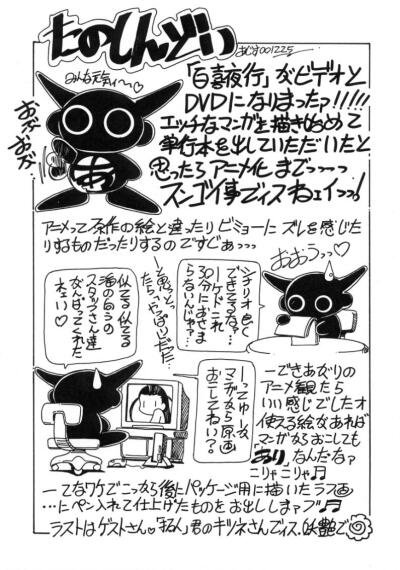 たのしんどい
みんな元気ィ〜♡
「百喜夜行」がビデオと
DVDになりまったァ!!!!!
エッチなマンガを描き始めて
単行本を出していただいたと
思ったらアニメ化まで〜っっっ
スンゴイ事でィスねェイっっ!
アニメって原作の絵と違ったりビミョーにズレを感じた
りするものだったりするのですどぁっっっ
おおうっっ♡
シナリオ良く
できてるなァ…
ーケドこれ
30分におさま
らないんじゃァ…
と思っとっ
たら「やっぱり」だた…
似てる似てる
海の向うの
スタッフさん達
ががんばってくれた
ねェい♡
ーってゆーか
マンガから原画
おこしてねい?
ーできあがりの
アニメ観たら
いい感じでしたオ
使える絵があれば
マンガからおこしても
「あり」なんだなァ
ニリャニリャ♫
ーてなワケでこっから後にパッケージ用に描いたラフ画
…にペン入れて仕上げたものをお出ししまァブ♫
ラストはゲストさん♥「拓人」君のキツネさんでィス。妖艶で